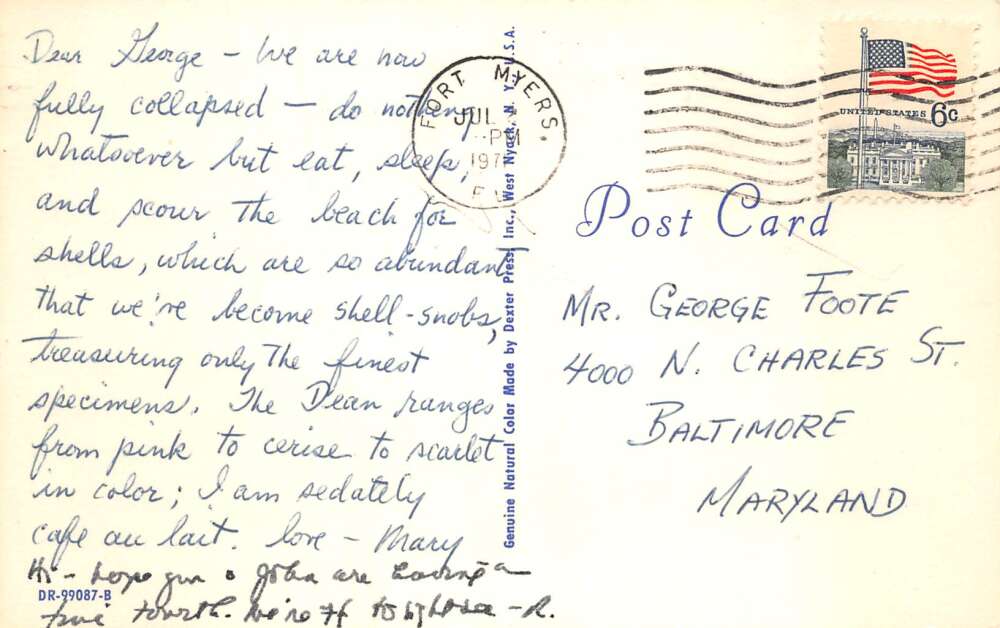 Dear George - We are now
fully collapsed - do nothing
whatsoever but eat, sleep,
and scour the beach for
shells, which are so abundant
that we've become shell-snobs,
treasuring only the finest
specimens. The Dean ranges
from pink to cerise to scarlet
in color; I am sedately
cafe au lait. love - Mary
Hi - hope you & John are having a
fine fourth. We're off to - R.
DR-99087-B
Genuine Natural Color Made by Dexter Press, Inc., West Nyack, N. Y. U.S.A.
FORT MYERS.
JUL
PM
197
UNITED STATES 6c
Post Card
MR. GEORGE FOOTE
4000 N. CHARLES ST.
BALTIMORE
MARYLAND